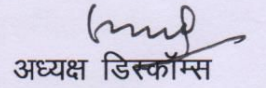 अध्यक्ष डिस्कॉम्स